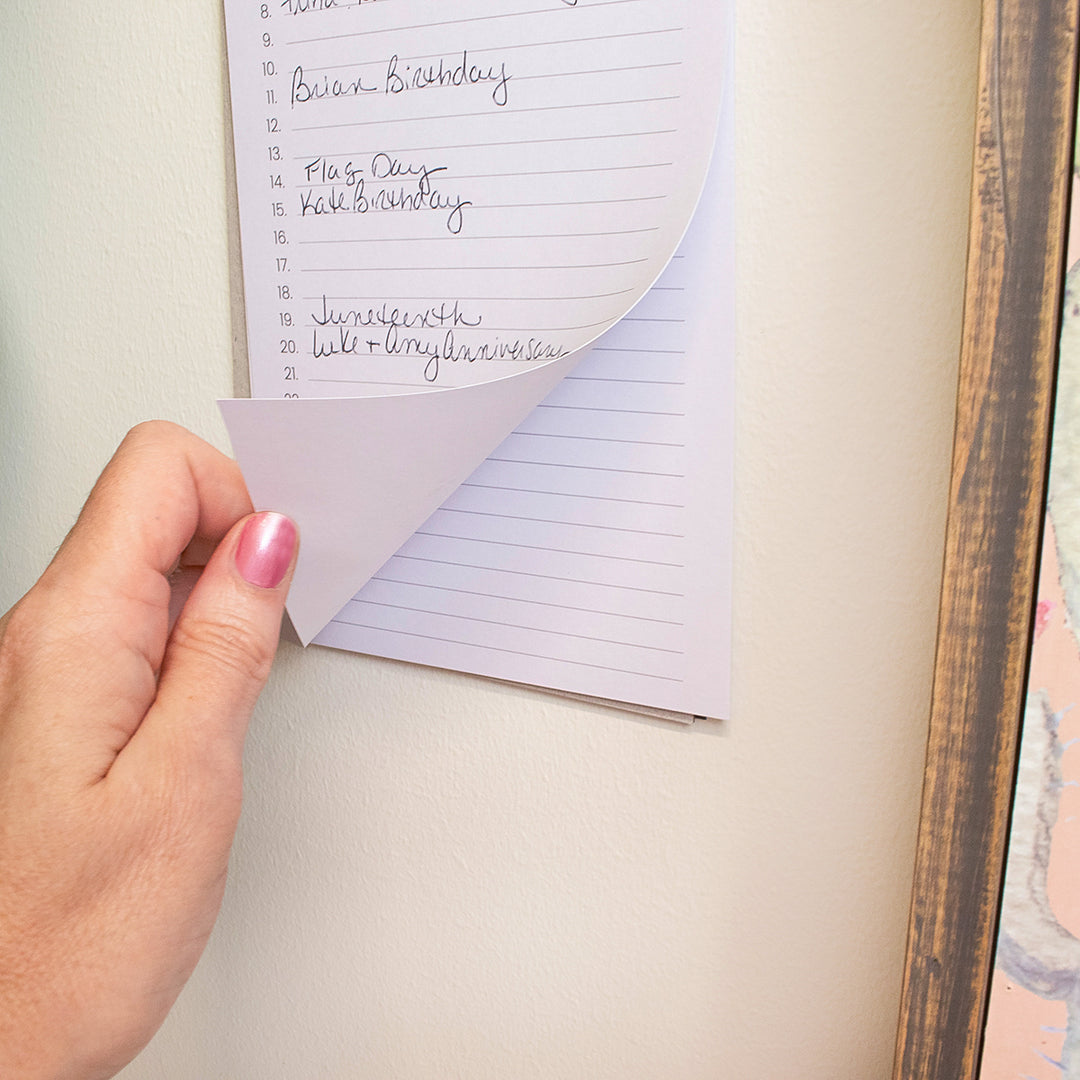 8.
9.
10.
11. Brian Birthday
12.
13.
14. Flag Day
15. Kate Birthday
16.
17.
18.
19. Juneteenth
20. Luke + Amy Anniversary
21.